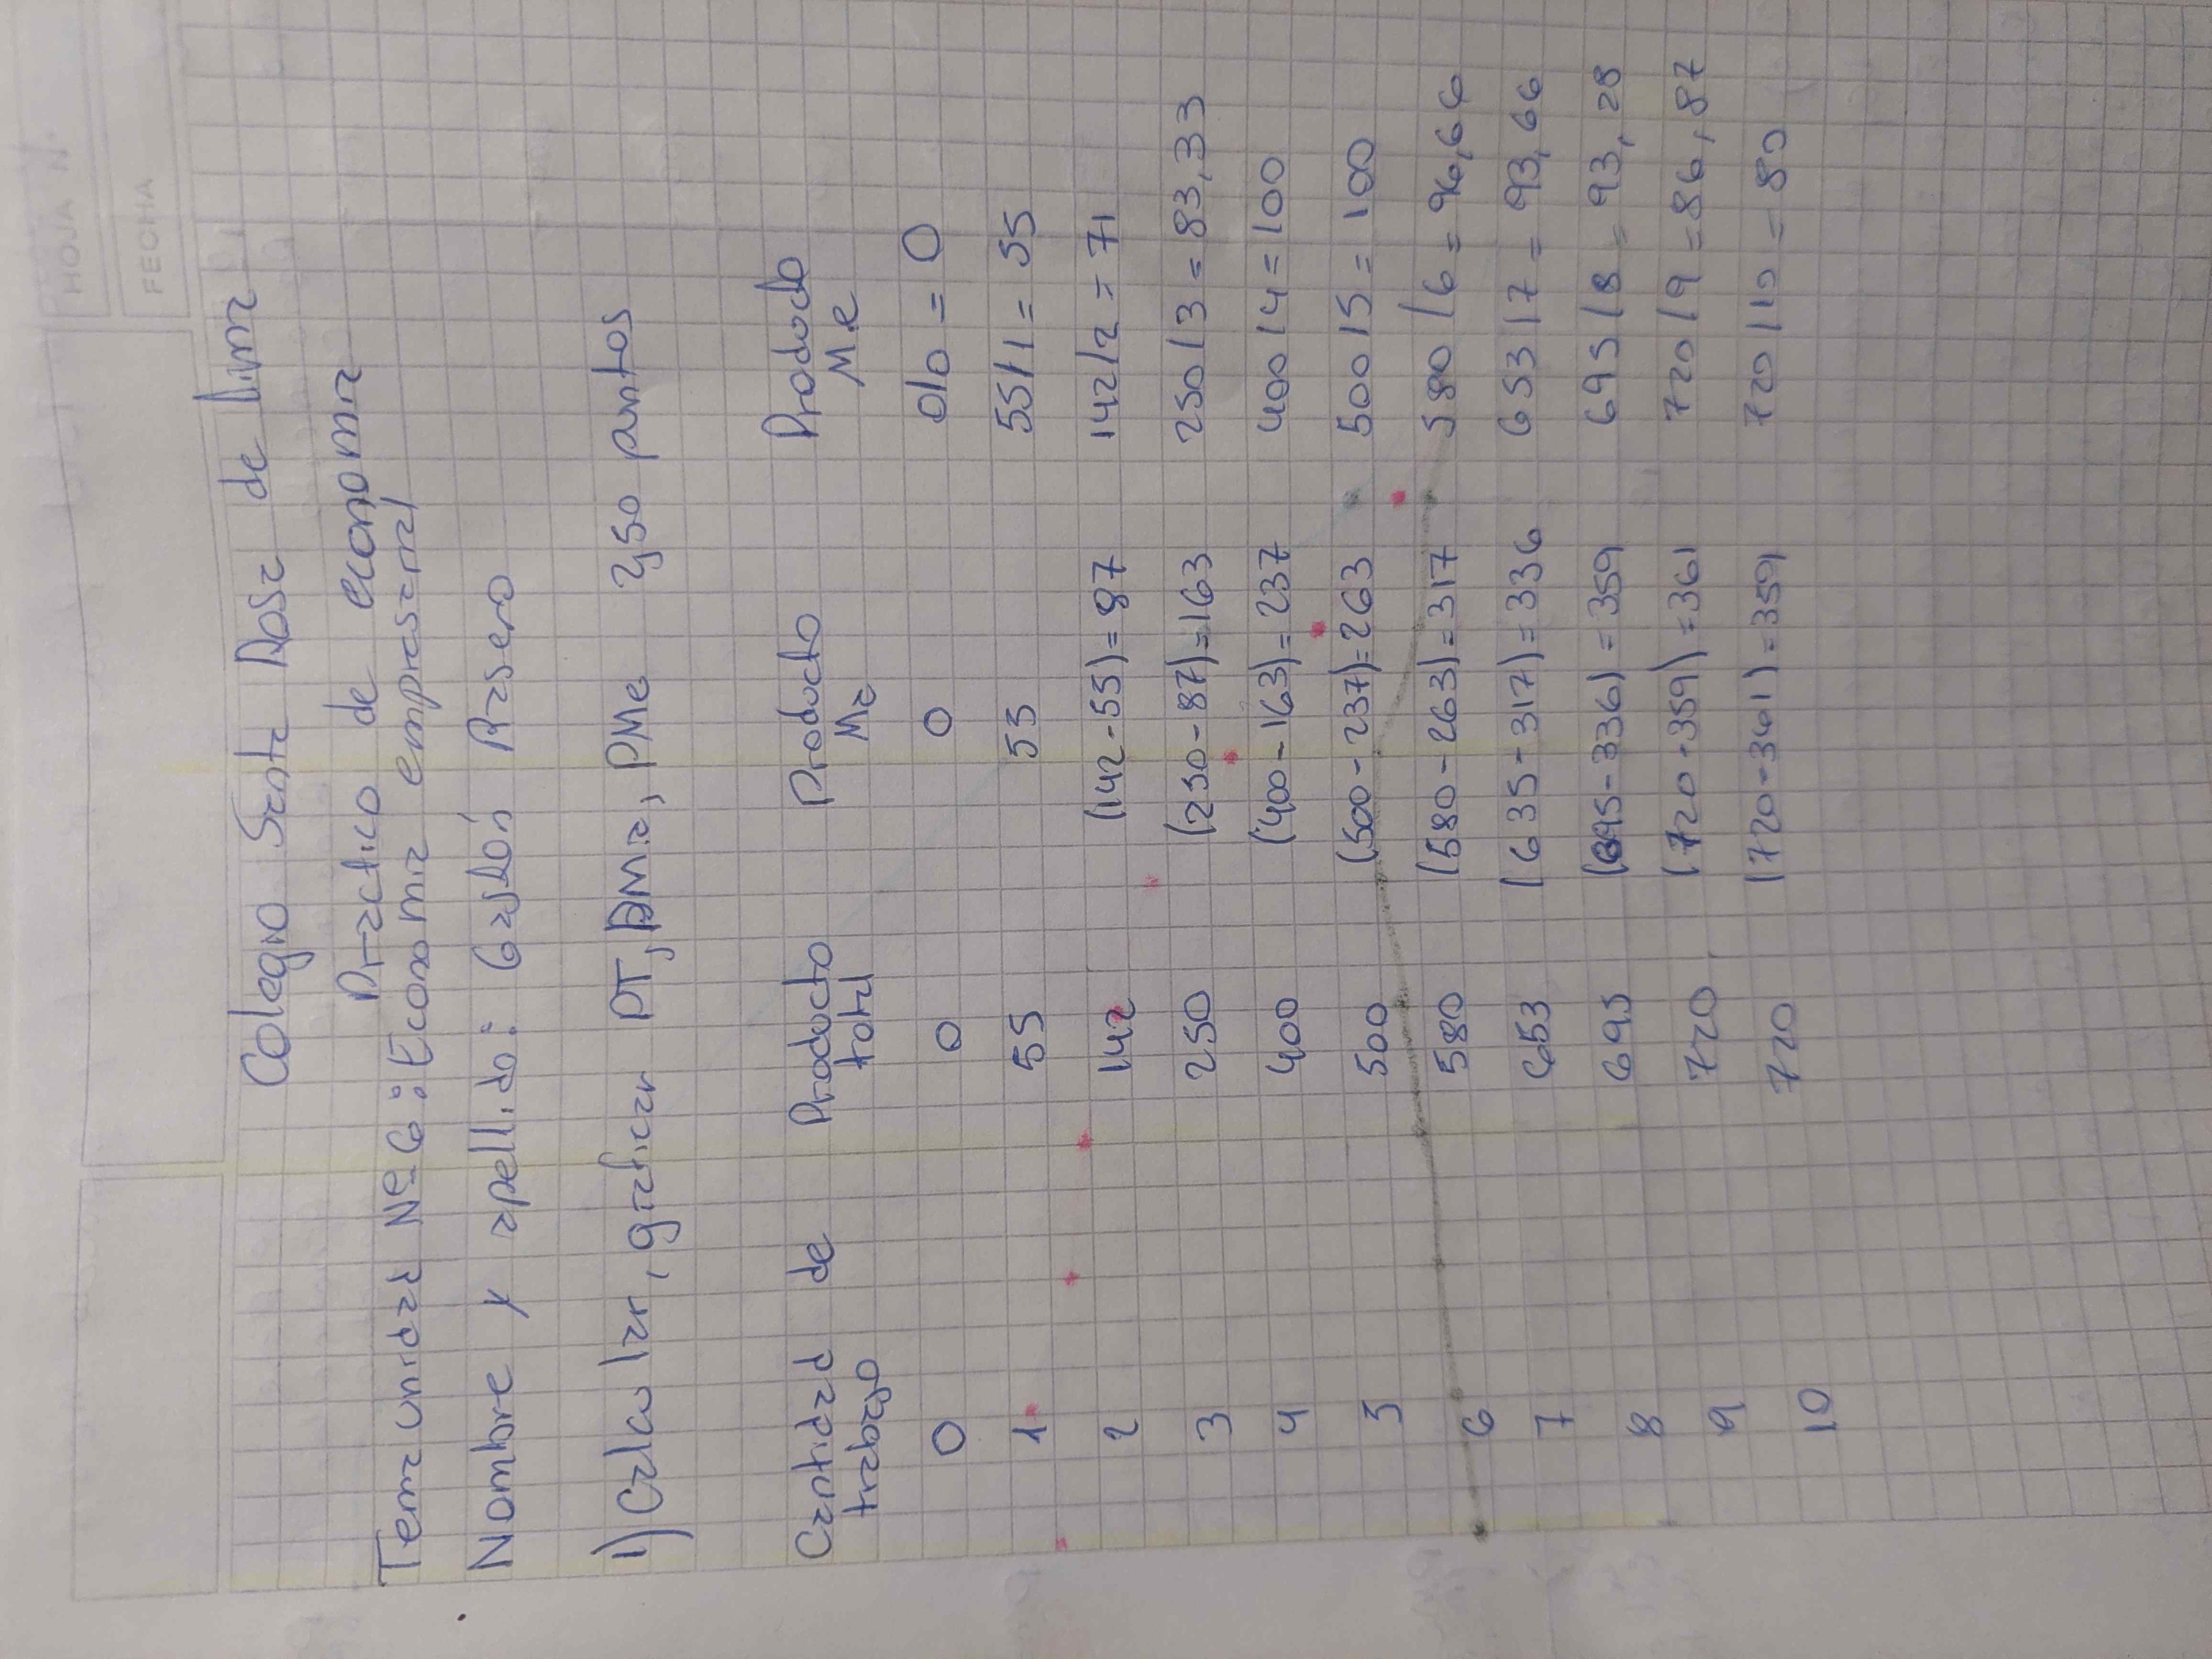 HOJA N.
FECHA
Colegio Santa Rosa de lima
Practico de economia
Tema unidad Nº 6: Economia empresarial
Nombre y apellido: Gastón Basero
1) Calcular, graficar PT, PMa, PMe yso pantos
Cantidad de trabajo Producto total Producto Ma Producto Me
0 0 0 0/0 = 0
1 55 55 55/1 = 55
2 142 (142-55)=87 142/2 = 71
3 250 (250-87)=163 250/3=83,33
4 400 (400-163)=237 400/4=100
5 500 (500-237)=263 500/5=100
6 580 (580-263)=317 580/6=96,66
7 653 (635-317)=336 653/7=93,66
8 695 (695-336)=359 695/8=93,28
9 720 (720-359)=361 720/9=86,87
10 720 (720-361)=359 720/10=80